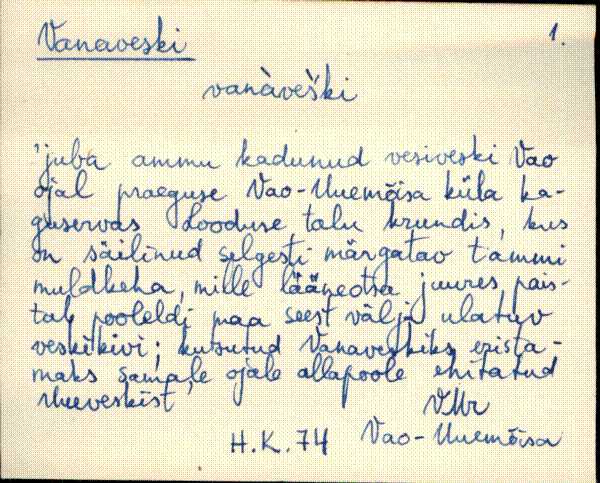 Vanaveski 1.
vanàveški
'juba ammu kadunud vesiveski Vao
ojal praeguse Vao-Uuemõisa küla ka-
guservas Looduse talu krundis, kus
on säilinud selgesti märgatav tammi
muldkeha, mille lääneotsa juures pais-
tab pooleldi maa seest välja ulatuv
veskikivi; kutsutud Vanaveskiks erista-
maks samale ojale allapoole ehitatud
Uueveskist'
VMr
H.K. 74 Vao-Uuemõisa